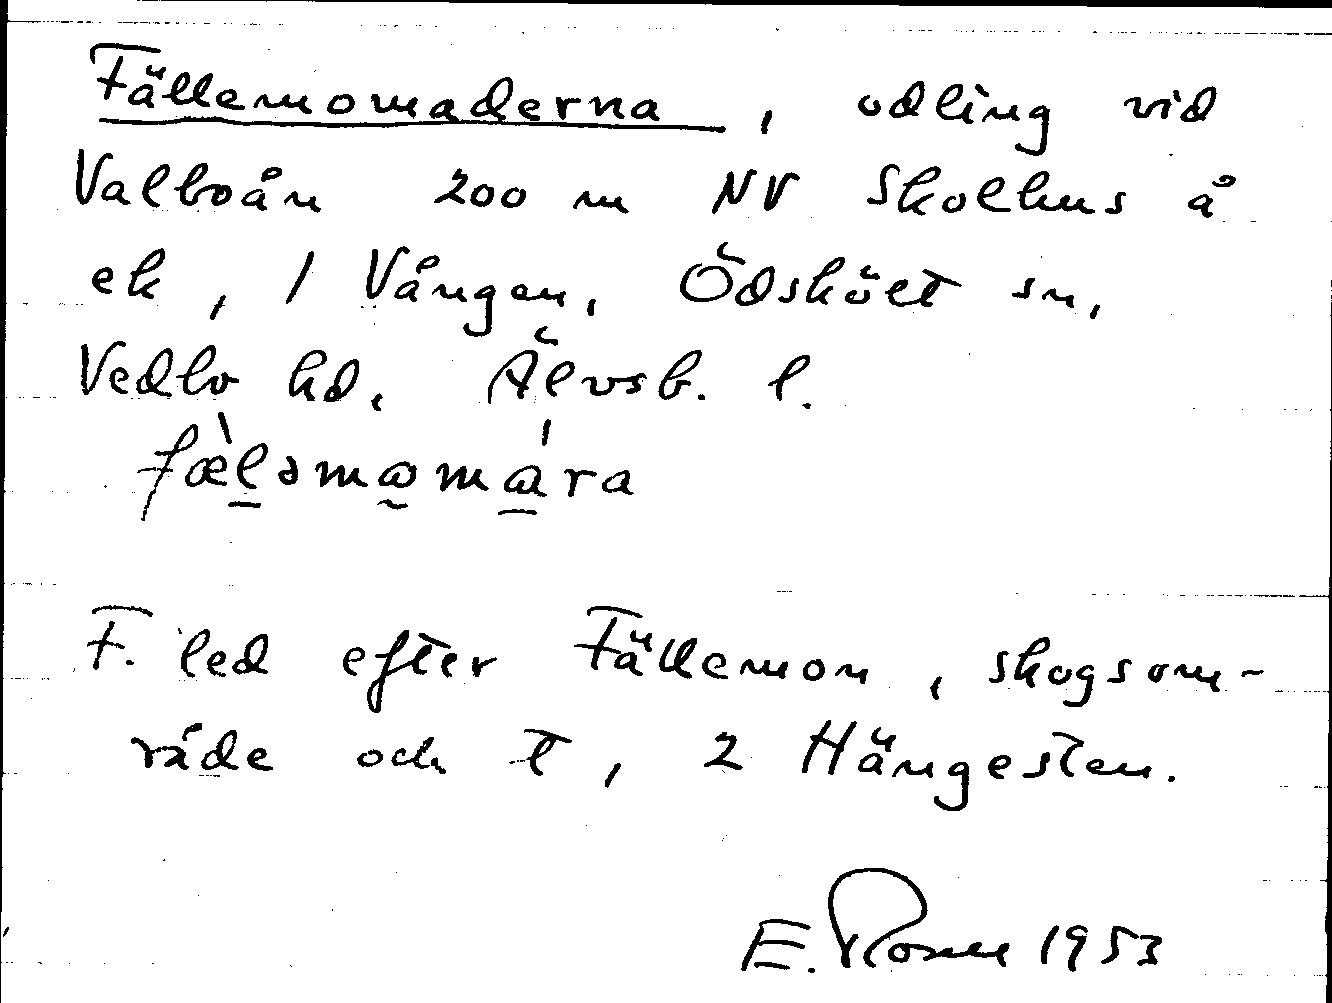 Fällemomaderna, odling vid
Valboån 200 m NV Skolhus å
ek, 1 Vången, ÖdsköLt sn,
Vedbo hd, Älvsb. l.
fæ̀ləmɷmɷ́ra
F. led efter Fällemon, skogsom-
råde och t, 2 Hängesten.
E. Rosne 1953